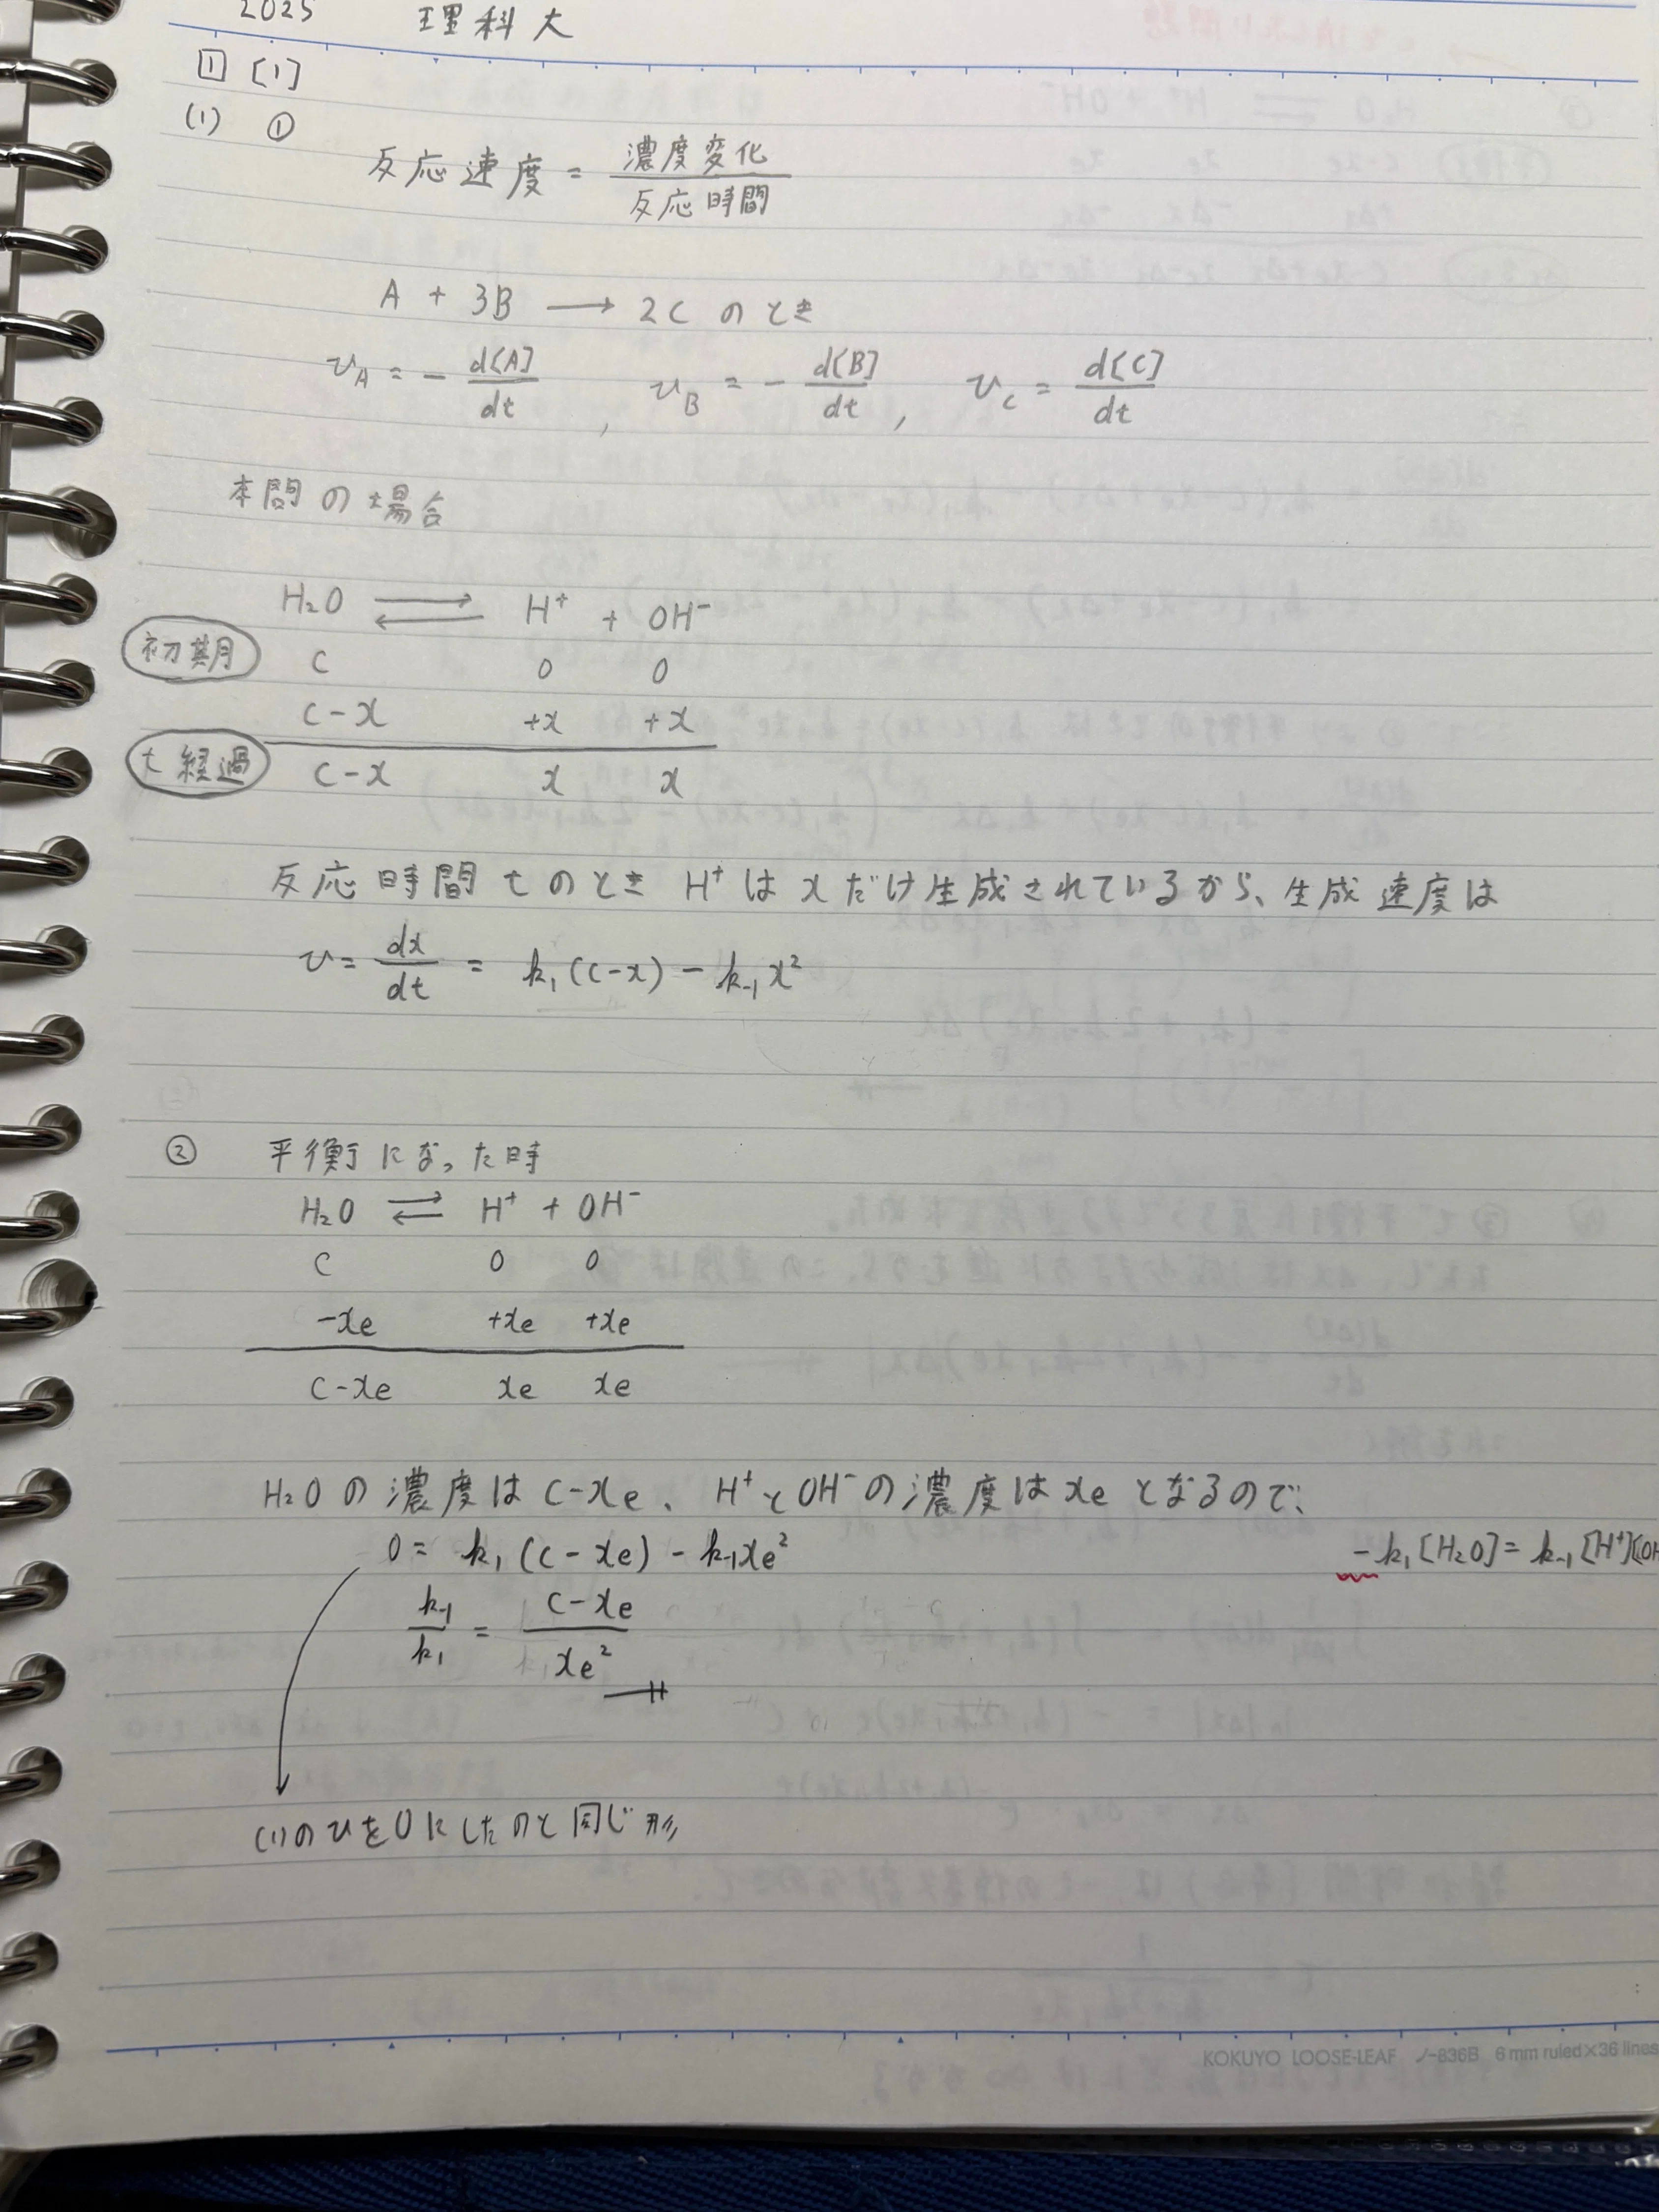 2025 理科大
1 [1]
(1) ①
反応速度 = 濃度変化 / 反応時間
A + 3B → 2C のとき
v_A = - d[A]/dt , v_B = - d[B]/dt , v_C = d[C]/dt
本問の場合
H₂O ⇄ H⁺ + OH⁻
初期 C 0 0
C-x +x +x
t 経過 C-x x x
反応時間 t のとき H⁺ は x だけ生成されているから、生成速度は
v = dx/dt = k₁(C-x) - k₋₁x²
② 平衡になった時
H₂O ⇄ H⁺ + OH⁻
C 0 0
-xe +xe +xe
C-xe xe xe
H₂O の濃度は C-xe、H⁺ と OH⁻ の濃度は xe となるので、
0 = k₁(C-xe) - k₋₁xe²
-k₁[H₂O] = k₋₁[H⁺][OH
k₋₁/k₁ = C-xe / xe²
(1)の v を 0 にしたのと同じ形
KOKUYO LOOSE-LEAF ノ-836B 6 mm ruled×36 lines